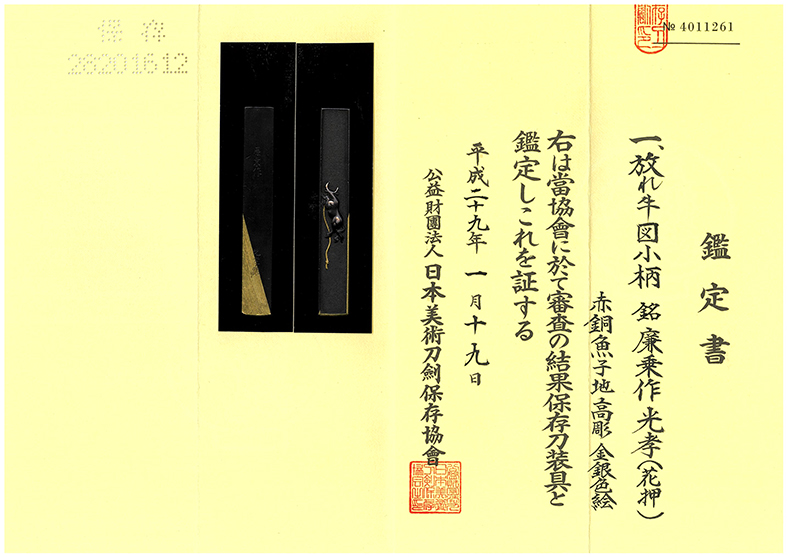 鑑定書
一、放れ牛図小柄 銘 廉乗作 光孝(花押)
赤銅魚子地 高彫 金銀色絵
右は當協會に於て審査の結果保存刀装具と
鑑定しこれを証する
平成二十九年 一月十九日
公益財團法人 日本美術刀劍保存協會
№ 4011261
保存
28201612